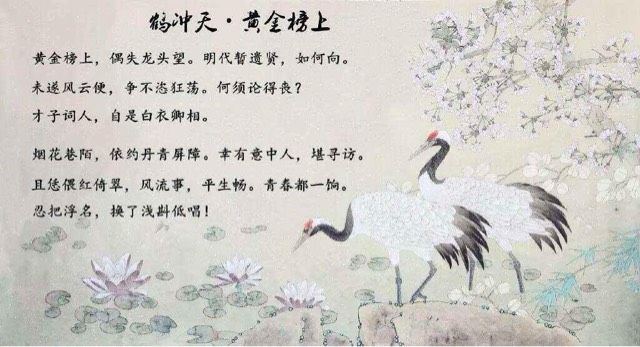 鹤冲天·黄金榜上
黄金榜上，偶失龙头望。明代暂遗贤，如何向。
未遂风云便，争不恣狂荡。何须论得丧？
才子词人，自是白衣卿相。
烟花巷陌，依约丹青屏障。幸有意中人，堪寻访。
且恁偎红倚翠，风流事，平生畅。青春都一饷。
忍把浮名，换了浅斟低唱！